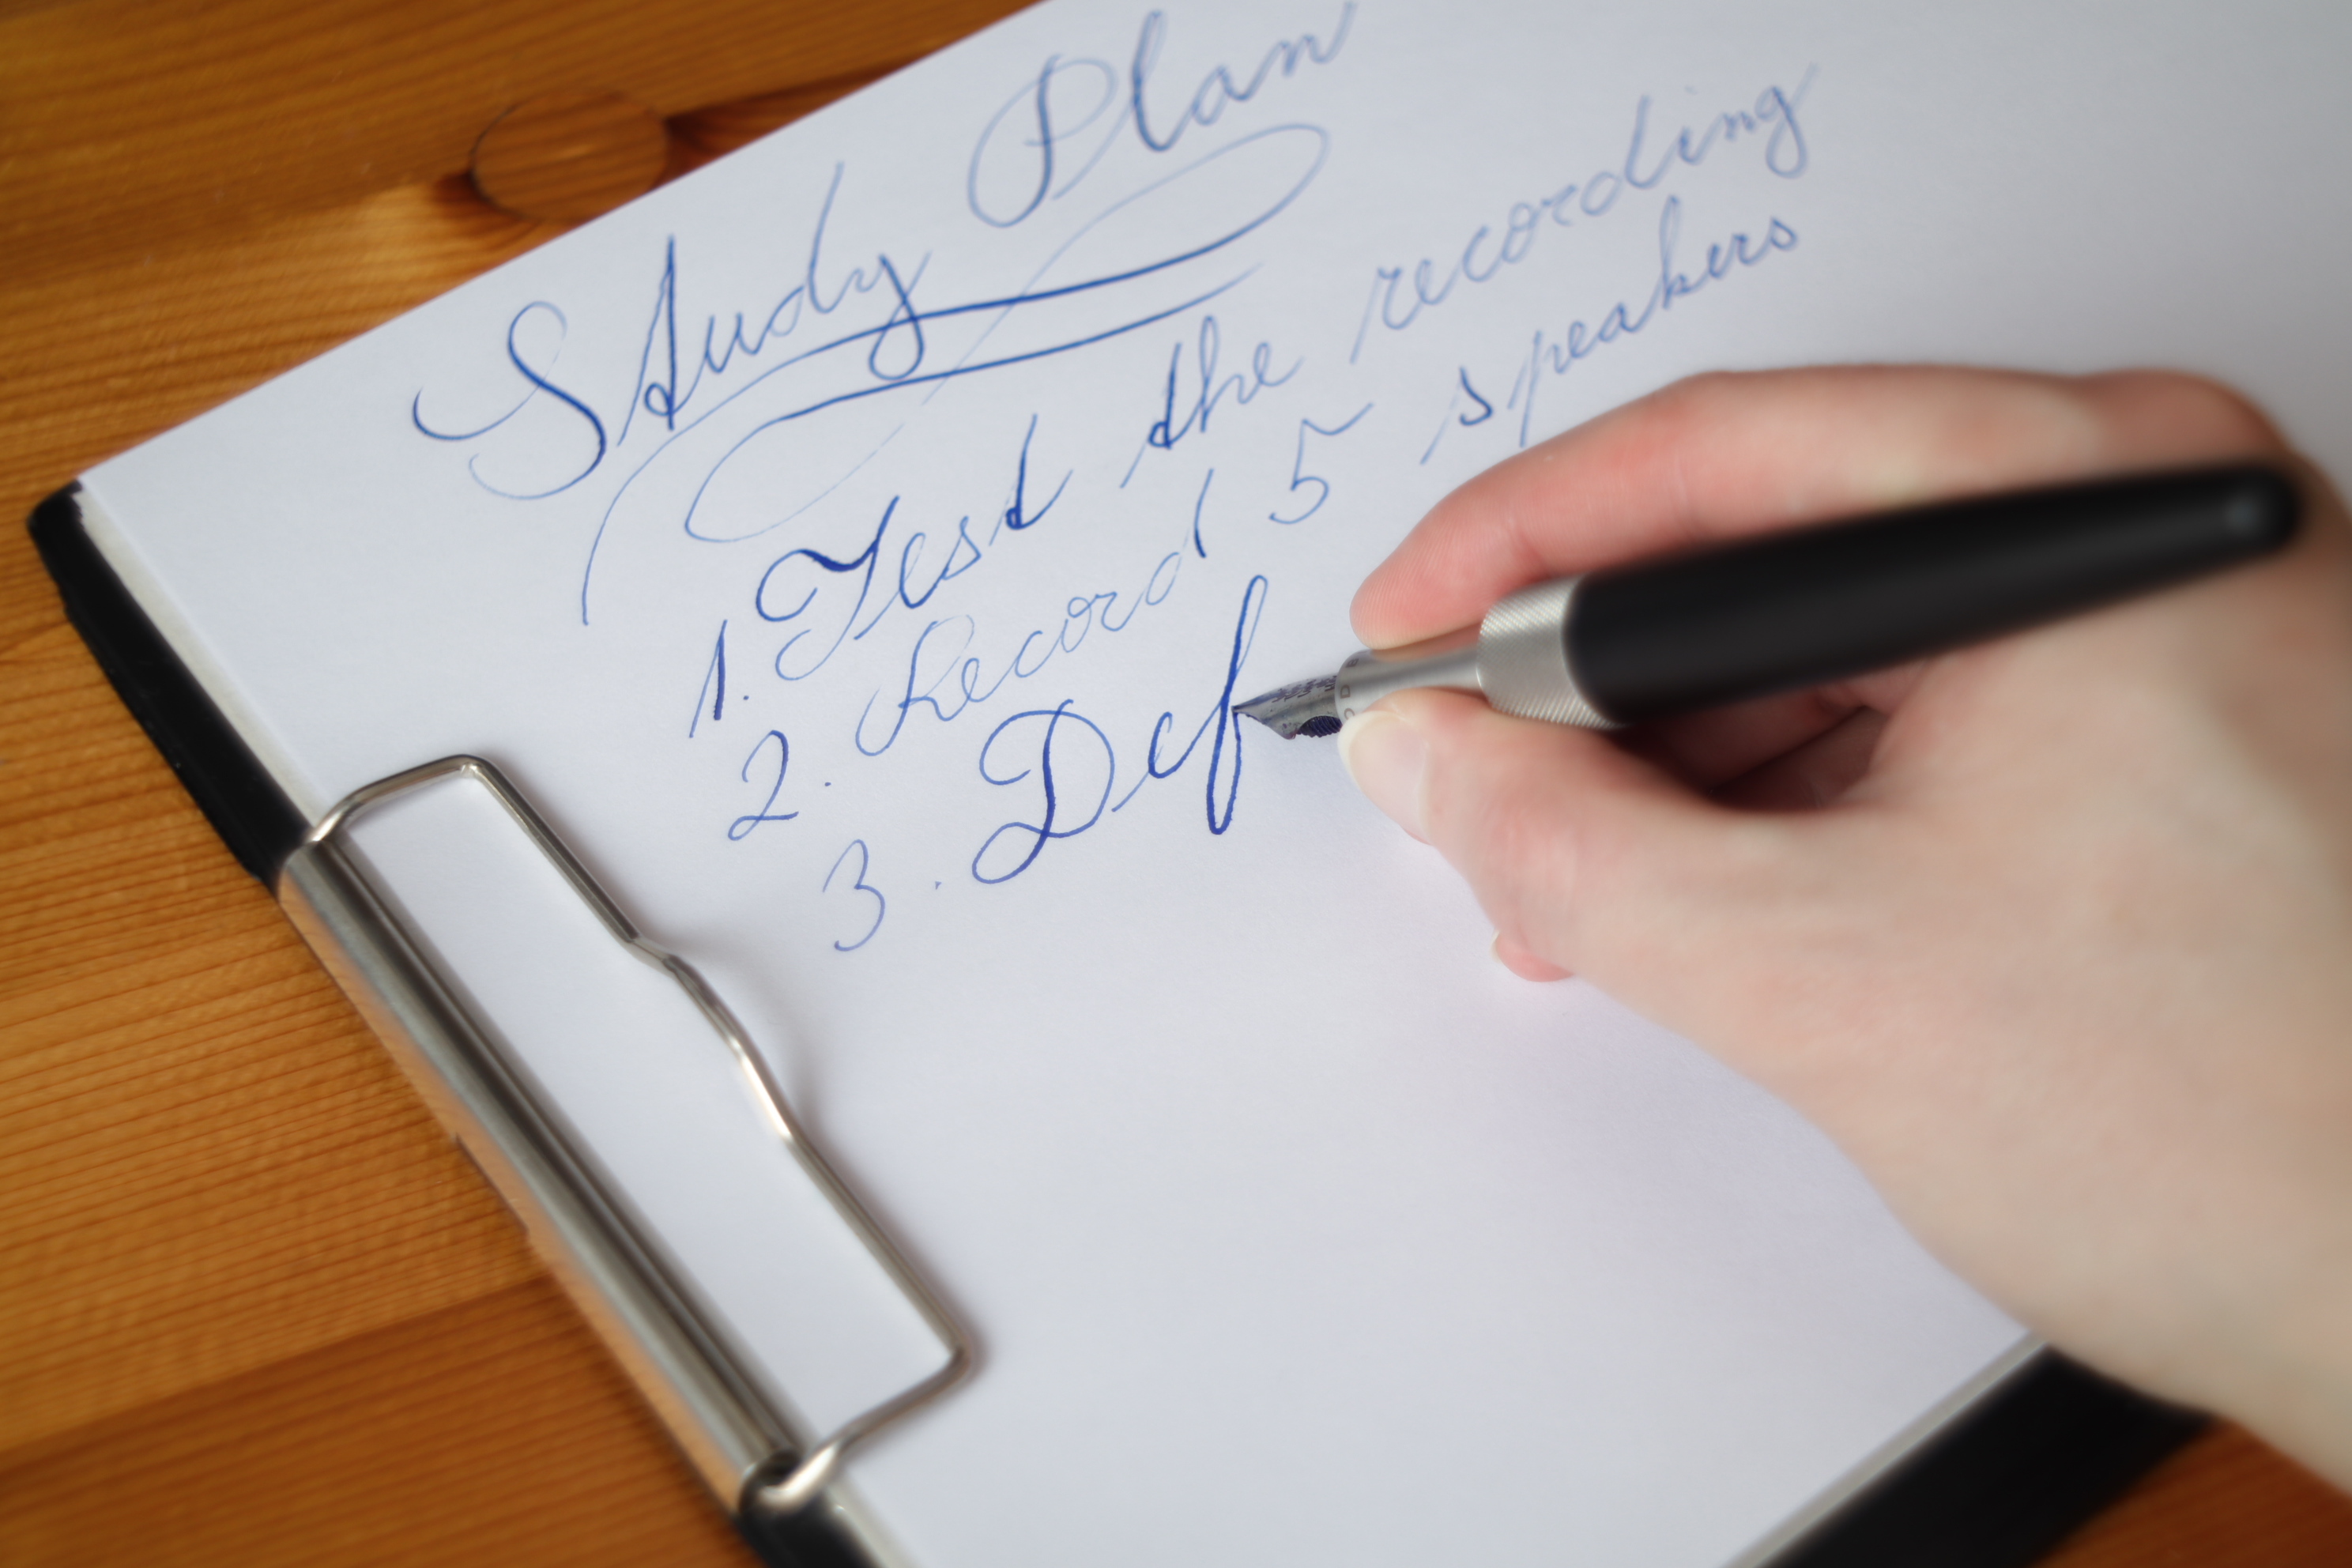 Study Plan
1. Test the recording
2. Record 5 speakers
3. Def